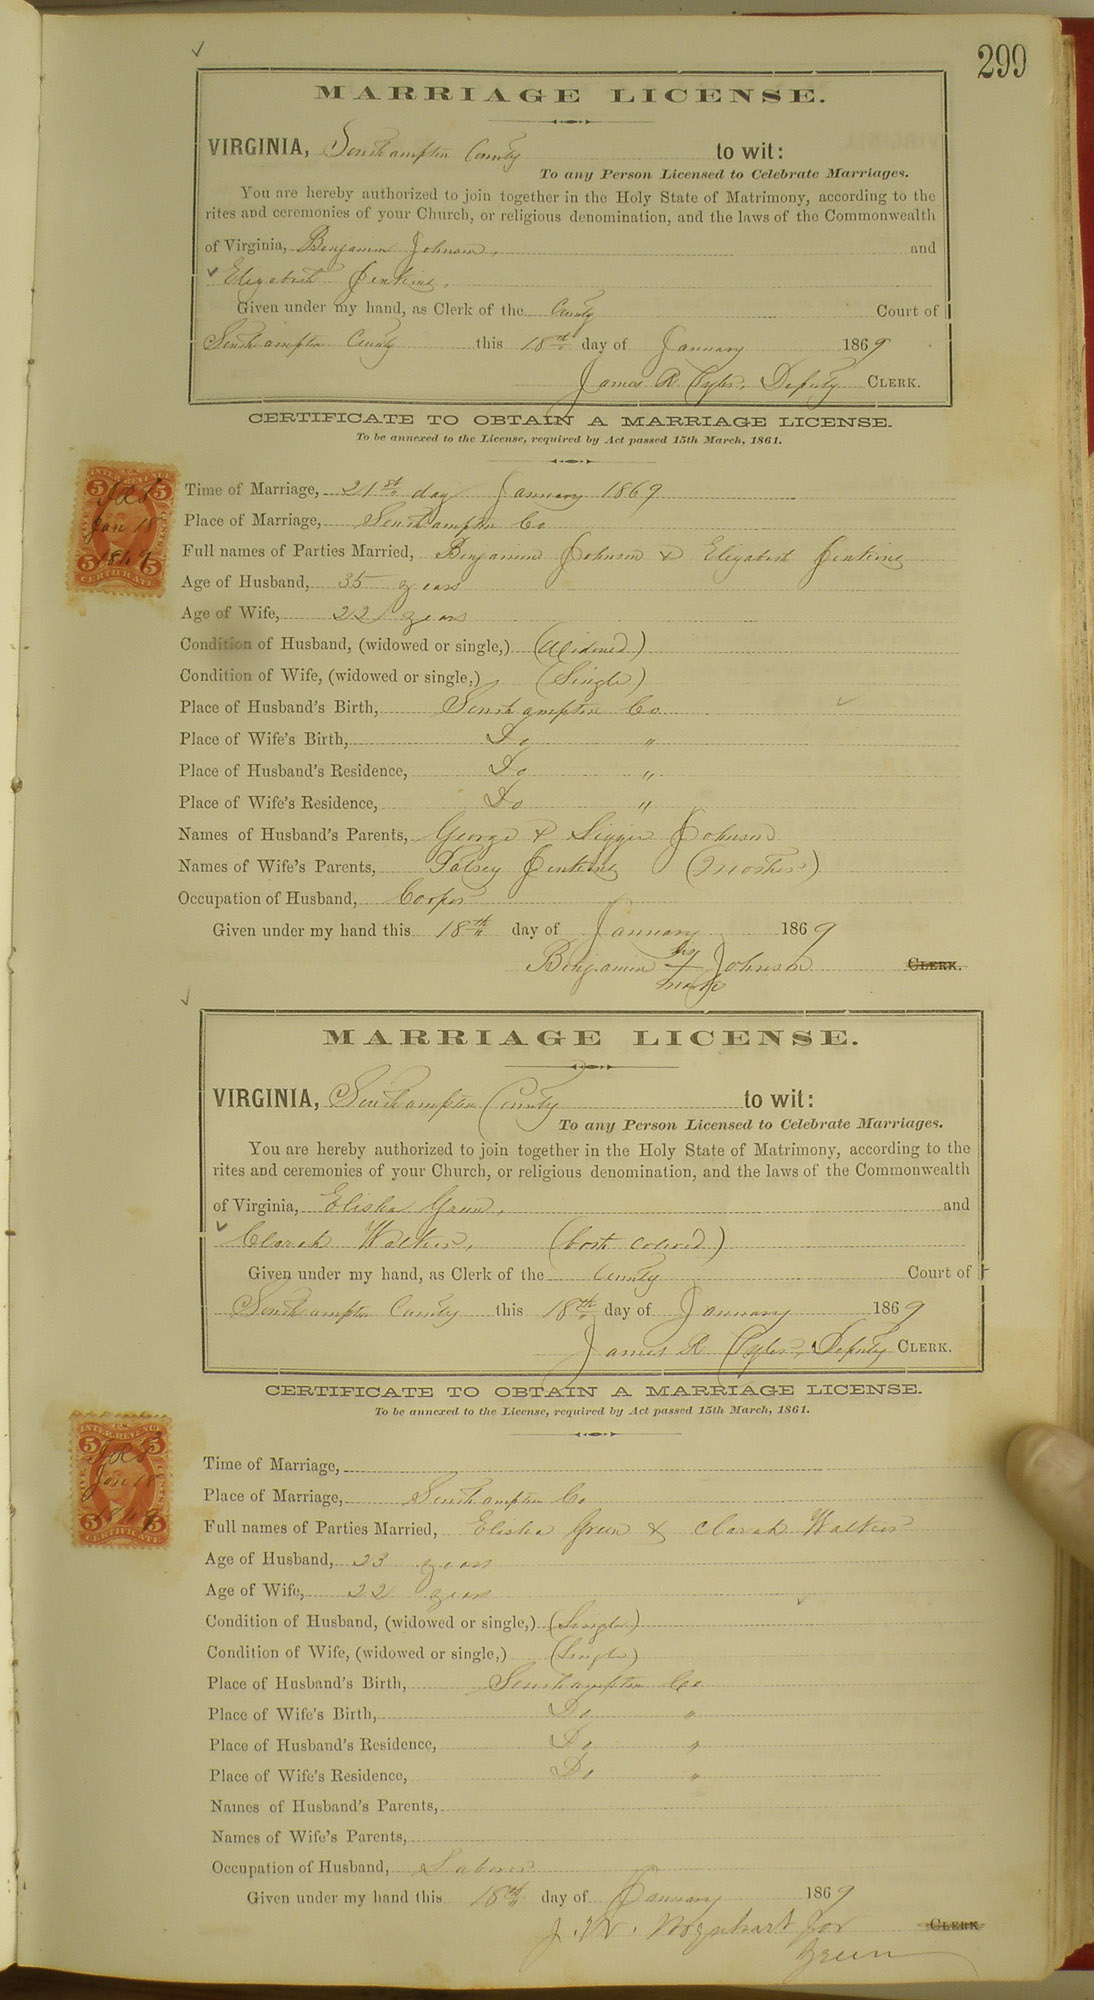 299
MARRIAGE LICENSE.
VIRGINIA, Southampton County to wit:
To any Person Licensed to Celebrate Marriages.
You are hereby authorized to join together in the Holy State of Matrimony, according to the
rites and ceremonies of your Church, or religious denomination, and the laws of the Commonwealth
of Virginia, Benjamin Johnson, and
Elizabeth Jenkins,
Given under my hand, as Clerk of the County Court of
Southampton County this 18th day of January 1869
James R. Tyler, Deputy CLERK.
CERTIFICATE TO OBTAIN A MARRIAGE LICENSE.
To be annexed to the License, required by Act passed 15th March, 1861.
Time of Marriage, 21st day January 1869
Place of Marriage, Southampton Co
Full names of Parties Married, Benjamin Johnson & Elizabeth Jenkins
Age of Husband, 35 years
Age of Wife, 22 years
Condition of Husband, (widowed or single,) (Widowed)
Condition of Wife, (widowed or single,) (Single)
Place of Husband's Birth, Southampton Co
Place of Wife's Birth, Do "
Place of Husband's Residence, Do "
Place of Wife's Residence, Do "
Names of Husband's Parents, George & Johnson
Names of Wife's Parents, Patsey Jenkins (Mother)
Occupation of Husband, Cooper
Given under my hand this 18th day of January 1869
his
Benjamin + Johnson CLERK.
mark
5 INTER. REVENUE 5
Jan 18
1869
5 5
CERTIFICATE
MARRIAGE LICENSE.
VIRGINIA, Southampton County to wit:
To any Person Licensed to Celebrate Marriages.
You are hereby authorized to join together in the Holy State of Matrimony, according to the
rites and ceremonies of your Church, or religious denomination, and the laws of the Commonwealth
of Virginia, Elisha Green, and
Clarah Walker, (both colored)
Given under my hand, as Clerk of the County Court of
Southampton County this 18th day of January 1869
James R. Tyler, Deputy CLERK.
CERTIFICATE TO OBTAIN A MARRIAGE LICENSE.
To be annexed to the License, required by Act passed 15th March, 1861.
Time of Marriage,
Place of Marriage, Southampton Co
Full names of Parties Married, Elisha Green & Clarah Walker
Age of Husband, 23 years
Age of Wife, 22 years
Condition of Husband, (widowed or single,) (Single)
Condition of Wife, (widowed or single,) (Single)
Place of Husband's Birth, Southampton Co
Place of Wife's Birth, Do "
Place of Husband's Residence, Do "
Place of Wife's Residence, Do "
Names of Husband's Parents,
Names of Wife's Parents,
Occupation of Husband, Laborer
Given under my hand this 18th day of January 1869
J. W. for CLERK
Green
5 INTER. REVENUE 5
Jan 18
1869
5 5
CERTIFICATE